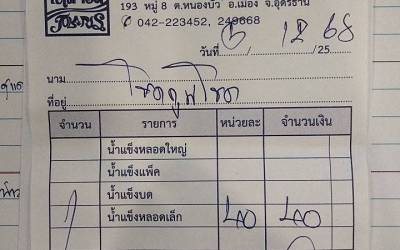 193 หมู่ 8 ต.หนองบัว อ.เมือง จ.อุดรธานี
✆ 042-223452, 249668
วันที่ 6 / 12 68 /25
นาม โชคคูณโชค
ที่อยู่
จำนวน รายการ หน่วยละ จำนวนเงิน
น้ำแข็งหลอดใหญ่
น้ำแข็งแพ็ค
น้ำแข็งบด
1 น้ำแข็งหลอดเล็ก 40 40